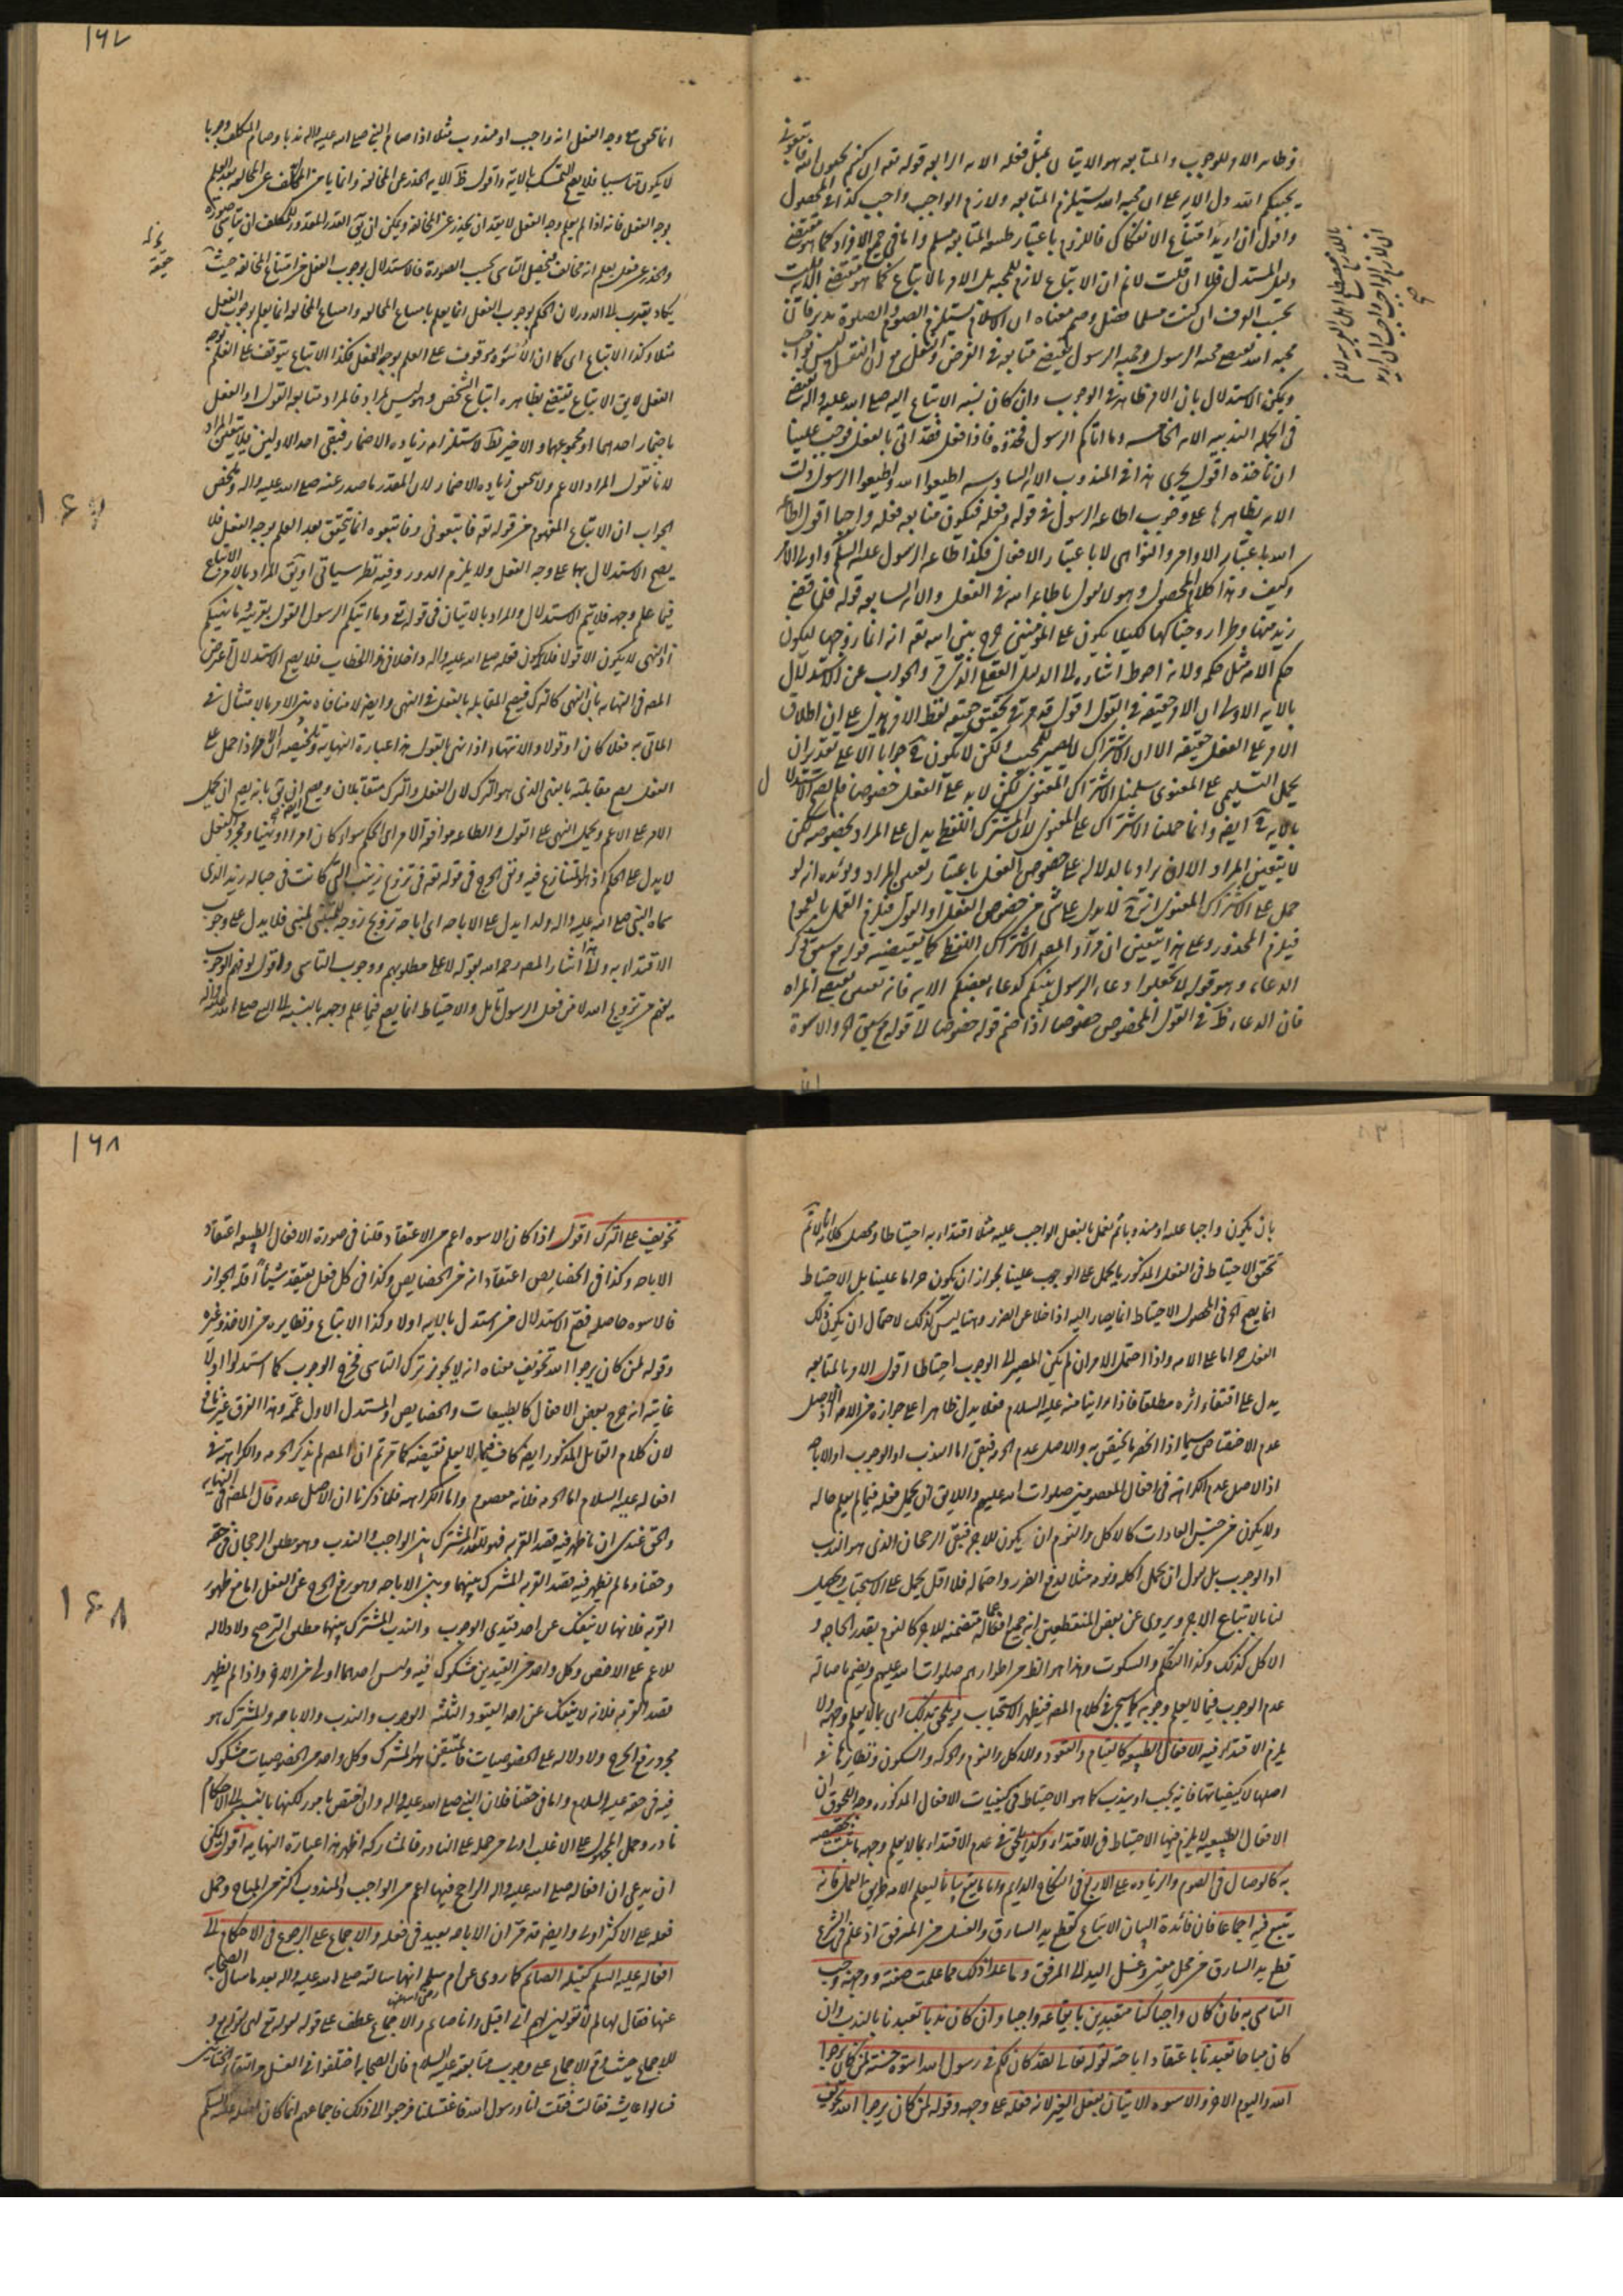 وظاهر الامر للوجوب والمتابعه هو الاتيان بمثل فعله الايه الرابعه قوله تعه ان كنتم تحبون الله فاتبعونى
يحببكم الله دل الايه على ان محبه الله يستلزم المتابعه ولازم الواجب واجب كذا فى المحصول
واقول ان اريد امتناع الانفكاك فاللزوم باعتبار المتابعه مسلم واما فى جميع الافراد كما هو مقتضى
دليل المستدل فلا ان قلت لانم ان الاتباع لازم للمحبه بل الامر بالاتباع كما هو مقتضى الايه قلت
بحسب العرف ان كنت مسلما فصل وصم معناه ان الاسلام يستلزم الصوم والصلوة
محبه الله تقتضى محبه الرسول ومحبه الرسول يقتضى متابعه فى الفرض والنفل مع ان النفل ليس بواجب
ويمكن الاستدلال بان الامر ظاهر فى الوجوب وان كان نسبه الاتباع اليه صلى الله عليه واله يقتضى
فى الجمله الندبيه الايه الخامسه وما اتاكم الرسول فخذوه فاذا فعل فقد اتى بالفعل فوجب علينا
ان ناخذه اقول يجرى هذا فى المندوب الايه السادسه اطيعوا الله واطيعوا الرسول دلت
الايه بظاهرها على وجوب اطاعه الرسول فى قوله وفعله فيكون متابعه فعله واجبا اقول اطاعه
الله باعتبار الاوامر والنواهى لا باعتبار الافعال فكذا اطاعه الرسول عليه السلم واولى الامر
وكيف وهذا كلام المحصول وهو لا يقول باطاعه الله فى الفعل والايه السابعه قوله فلما قضى
زيد منها وطرا زوجناكها لكيلا يكون على المؤمنين حرج بين الله تعه انه انما زوجها ليكون
حكم الامه مثل حكمه ولانه احوط اشاره الى الدليل العقلى الذى والجواب عن الاستدلال
بالايه الاولى ان الامر حقيقه فى القول اقول قد مر فى تحقيق حقيقه لفظ الامر ما يدل على ان اطلاق
الامر على الفعل حقيقه الا ان الاشتراك لا يصير للمجيب ولكن لا يكون جوابا الا على تقدير ان
يحمل التسليمى على المعنوى سلمنا الاشتراك المعنوى لكن لا يدل على الفعل خصوصا فلم يصح الاستدلال
بالايه ايضه وانما حملنا الاشتراك على المعنوى لان المشترك اللفظى يدل على المراد بخصوصه لكن
لا يتعين المراد الا ان يراد بالدلاله على خصوص الفعل باعتبار تعيين المراد ويؤيده انه لو
حمل على الاشتراك المعنوى لا يدل على شى من خصوص الفعل او القول فيلزم العمل بالعموم
فيلزم المحذور وعلى هذا يتعين ان مراد المصه الاشتراك اللفظى كما يقتضيه قوله مع سبق ذكر
الدعاء وهو قوله لا تجعلوا دعاء الرسول بينكم كدعاء بعضكم الايه فانه يقتضى المراد
فان الدعاء ظ فى القول المخصوص خصوصا اذا ضم قوله خصوصا الى قوله مع سبق اه والاسوة
۱۶۷
انما تحقق مع وجه الفعل انه واجب او مندوب مثلا اذا صام النبى صلى الله عليه واله ندبا وصام المكلف وجوبا
لا يكون تاسيا فلا يصح التمسك بالاية واقول ظ الايه الحذر عن المخالفة وانما يامن المكلف عن المخالفه بعد العلم
بوجه الفعل فانه اذا لم يعلم وجه الفعل لا يقدر ان يحذر عن المخالفه ويمكن ان يق القدر المقدور للمكلف ان يتاسى صورة
والحذر عن فعل يعلم انه مخالف فيحصل التاسى بحسب الصورة فالاستدلال بوجوب الفعل من امتناع المخالفه حيث
يكاد يقرب الى الدور لان الحكم بوجوب الفعل انما يعلم بامتناع المخالفه وامتناع المخالفه انما يعلم بوجوب الفعل
مثلا وكذا الاتباع اى كما ان الاسوه موقوف على العلم بوجه الفعل فكذا الاتباع يتوقف على العلم بوجه
الفعل لا يق الاتباع يقتضى بظاهره اتباع الشخص وهو ليس بمراد فالمراد متابعه القول او الفعل
باضمار احدهما او مجموعهما والاخير بط لاستلزامه زياده الاضمار فيبقى احد الاولين فلا يتعين المراد
لانا نقول المراد الاعم ولا يتحقق زياده الاضمار لان المقدر ما صدر عنه صلى الله عليه واله وملخص
الجواب ان الاتباع المفهوم من قوله تعه فاتبعونى وفاتبعوه انما يتحقق بعد العلم بوجه الفعل فلا
يصح الاستدلال بها على وجه الفعل ولا يلزم الدور وفيه نظر سياتى او يق المراد بالامر بالاتباع
فيما علم وجهه فلا يتم الاستدلال والمراد بالاتيان فى قوله تعه وما اتيكم الرسول القول بقرينة ما نهيكم
اذ النهى لا يكون الا قولا فلا يكون فعله صلى الله عليه واله داخلا فى هذا الخطاب فلا يصح الاستدلال اعترض
المصه فى النهايه بان النهى كالترك فيصح المقابله بالفعل فى النهى وايضه لا منافاه بين الامر بالامتثال فى
الماتى به فعلا كان او قولا والانتهاء اذا نهى بالقول هذا عبارة النهايه وتلخيصه ان الامر اذا حمل على
الفعل يصح مقابلته بالنهى الذى هو الترك لان الفعل والترك متقابلان ويصح ان يق بانه يصح ان يحمل
الامر على الاعم ويحمل النهى على القول والطاعه موافقه الامر اى الحكم سواء كان امرا او نهيا ومجرد الفعل
لا يدل على الحكم اذ هو المتنازع فيه ونفى الحرج فى قوله تعه فى تزوج زينب التى كانت فى حباله زيد الذى
سماه النبى صلى الله عليه واله ولدا يدل على الاباحه اى اباحه تزويج زوجه المتبنى للمتبنى فلا يدل على وجوب
الاقتداء به والى هذا اشار المصه رحمه الله بقوله لا على مطلوبهم ووجوب التاسى واقول لو فهم الوجوب
يفهم من تزويج الله لا من فعل الرسول تامل والاحتياط انما يصح فيما علم وجهه بالنسبه اليه صلى الله عليه واله
۱۶۷
بان يكون واجبا عليه او مندوبا ثم نعمل بالفعل الواجب عليه مثلا اقتداء به احتياطا ومحصل كلامه انا لانم
تحقق الاحتياط فى الفعل المذكور بالحمل على الوجوب علينا لجواز ان يكون حراما علينا بل الاحتياط
انما يصح قال فى المحصول الاحتياط انما يصار اليه اذا خلا عن الضرر وهنا ليس كذلك لاحتمال ان يكون ذلك
الفعل حراما على الامه واذا احتمل الامران لم يكن المصير الى الوجوب احتياطا اقول الامر بالمتابعه
يدل على اقتفاء اثره مطلقا فاذا راينا منه عليه السلام فعلا يدل ظاهرا على جوازه من الامه اذ الاصل
عدم الاختصاص سيما اذا انحصر ما يختص به والاصل عدم الحرمه فيبقى اما الندب او الوجوب او الاباحه
اذ الاصل عدم الكراهه فى افعال المعصومين صلوات الله عليهم واللايق ان يحمل فعله فيما لم يعلم حاله
ولا يكون من جنس العادات كالاكل والنوم ان يكون للاجر فيبقى الرجحان الذى هو الندب
او الوجوب بل نقول ان يحمل اكله ونومه مثلا بدفع الضرر واحتماله فلا اقل يحمل على الاستحباب ويحصل
لنا بالاتباع الاجر ويروى عن بعض المنقطعين انه جميع افعاله متضمنه للاجر كالنوم بقدر الحاجه و
الاكل كذلك وكذا التكلم والسكوت وهذا هو الظ من اطوارهم صلوات الله عليهم ويضم باصاله
عدم الوجوب فيما لا يعلم وجوبه كما سيجى فى كلام المصه فيظهر الاستحباب ويلحق بذلك اى بما لا يعلم وجهه ولا
يلزم الاقتداء فيه الافعال الطبيعيه كالقيام والقعود والاكل والنوم والحركه والسكون ونظايرها فى
اصلها لا كيفياتها فانه يجب او يندب كما هو الاحتياط فى كيفيات الافعال المذكوره وجه اللحوق ان
الافعال الطبيعيه لا يلزم فيها الاحتياط فى الاقتداء وكذا يلحق فى عدم الاقتداء بما لا يعلم وجهه ما ثبت تخصيصه
به كالوصال فى الصوم والزياده على الاربع فى النكاح الدايم واما ما يقع بيانا ليعلم الامه طريق العمل فانه
يتبع فيه اجماعا فان فائدة البيان الاتباع كقطع يد السارق والغسل من المرفق اذ علم فى الشرع
قطع يد السارق من محل معين وغسل اليد الى المرفق وما عدا ذلك مما علمت صفته ووجهه وجب
التاسى به فان كان واجبا كنا متعبدين بايقاعه واجبا وان كان ندبا تعبدنا بالندب وان
كان مباحا تعبدنا باعتقاد اباحته لقوله تعالى لقد كان لكم فى رسول الله اسوة حسنة لمن كان يرجوا
الله واليوم الاخر والاسوه الاتيان بفعل الغير لانه فعله على وجهه وقوله لمن كان يرجوا الله تخويف
۱۶۸
تخويف على الترك اقول اذا كان الاسوه اعم من الاعتقاد قلنا فى صورة الافعال الطبيعيه اعتقاد
الاباحه وكذا فى الخصايص اعتقاد انه من الخصايص وكذا فى كل فعل يعتقد شيئا اقله الجواز
فالاسوه حاصله فصح الاستدلال من استدل بالايه اولا وكذا الاتباع ونظايره من الاخذ وغيره
وقوله لمن كان يرجوا الله تخويف معناه انه لا يجوز ترك التاسى فخرج الوجوب كما استدلوا اولا
غايته انه خرج بعض الافعال كالطبيعيات والخصايص والمستدل الاول عممه وهذا الفرق غير نافع
لان كلام القائل المذكور ايضه كاف فيما لا يعلم نقيضه كما مر ثم ان المصه لم يذكر الحرمه والكراهه فى
افعاله عليه السلام اما الحرمه فلانه معصوم واما الكراهه فلما ذكرنا ان الاصل عدمه قال المصه فى النهايه
والحق عندى ان ما ظهر فيه قصد القربه فهو للقدر المشترك بين الواجب والندب وهو مطلق الرجحان فى حقه
وحقنا وما لم يظهر فيه قصد القربه المشترك بينهما وبين الاباحه وهو رفع الحرج عن الفعل اما مع ظهور
القربه فلانها لا ينفك عن احد قيدى الوجوب والندب المشترك بينهما مطلق الترجيح ولا دلاله
للاعم على الاخص وكل واحد من القيدين مشكوك فيه وليس احدهما اولى من الاخر واذا لم يظهر
قصد القربه فلانه لا ينفك عن احد القيود الثلثه الوجوب والندب والاباحه والمشترك هو
مجرد رفع الحرج ولا دلاله على الخصوصيات فالمتيقن هو المشترك وكل واحد من الخصوصيات مشكوك
فيه فى حقه عليه السلام واما فى حقنا فلان النبى صلى الله عليه واله وان اختص بامور لكنها بالنسبه الى الاحكام
نادر وحمل المجهول على الاغلب اولى من حمله على النادر فالمشاركه اظهر هذا عبارة النهايه اقول يمكن
ان يدعى ان افعاله صلى الله عليه واله الراجح فيها اعم من الواجب والمندوب اكثر من المباح وحمل
فعله على الاكثر اولى وايضه قد مر ان الاباحه بعيد فى فعله والاجماع على الرجوع فى الاحكام الى
افعاله عليه السلم كقبله الصائم كما روى عن ام سلمه انها سالته صلى الله عليه واله بعد ما سال الصحابه
عنها فقال لها لم لا تقولين لهم انى اقبل وانا صائم والاجماع عطف على قوله لقوله تعه
للاجماع حيث وقع الاجماع على وجوب متابعته عليه السلام فان الصحابه اختلفوا فى الغسل من التقاء الختانين
فسالوا عايشه فقالت فعلت انا ورسول الله فاغتسلنا فرجعوا الى ذلك فاجماعهم انما كان لفعله عليه السلم
۱۶۸